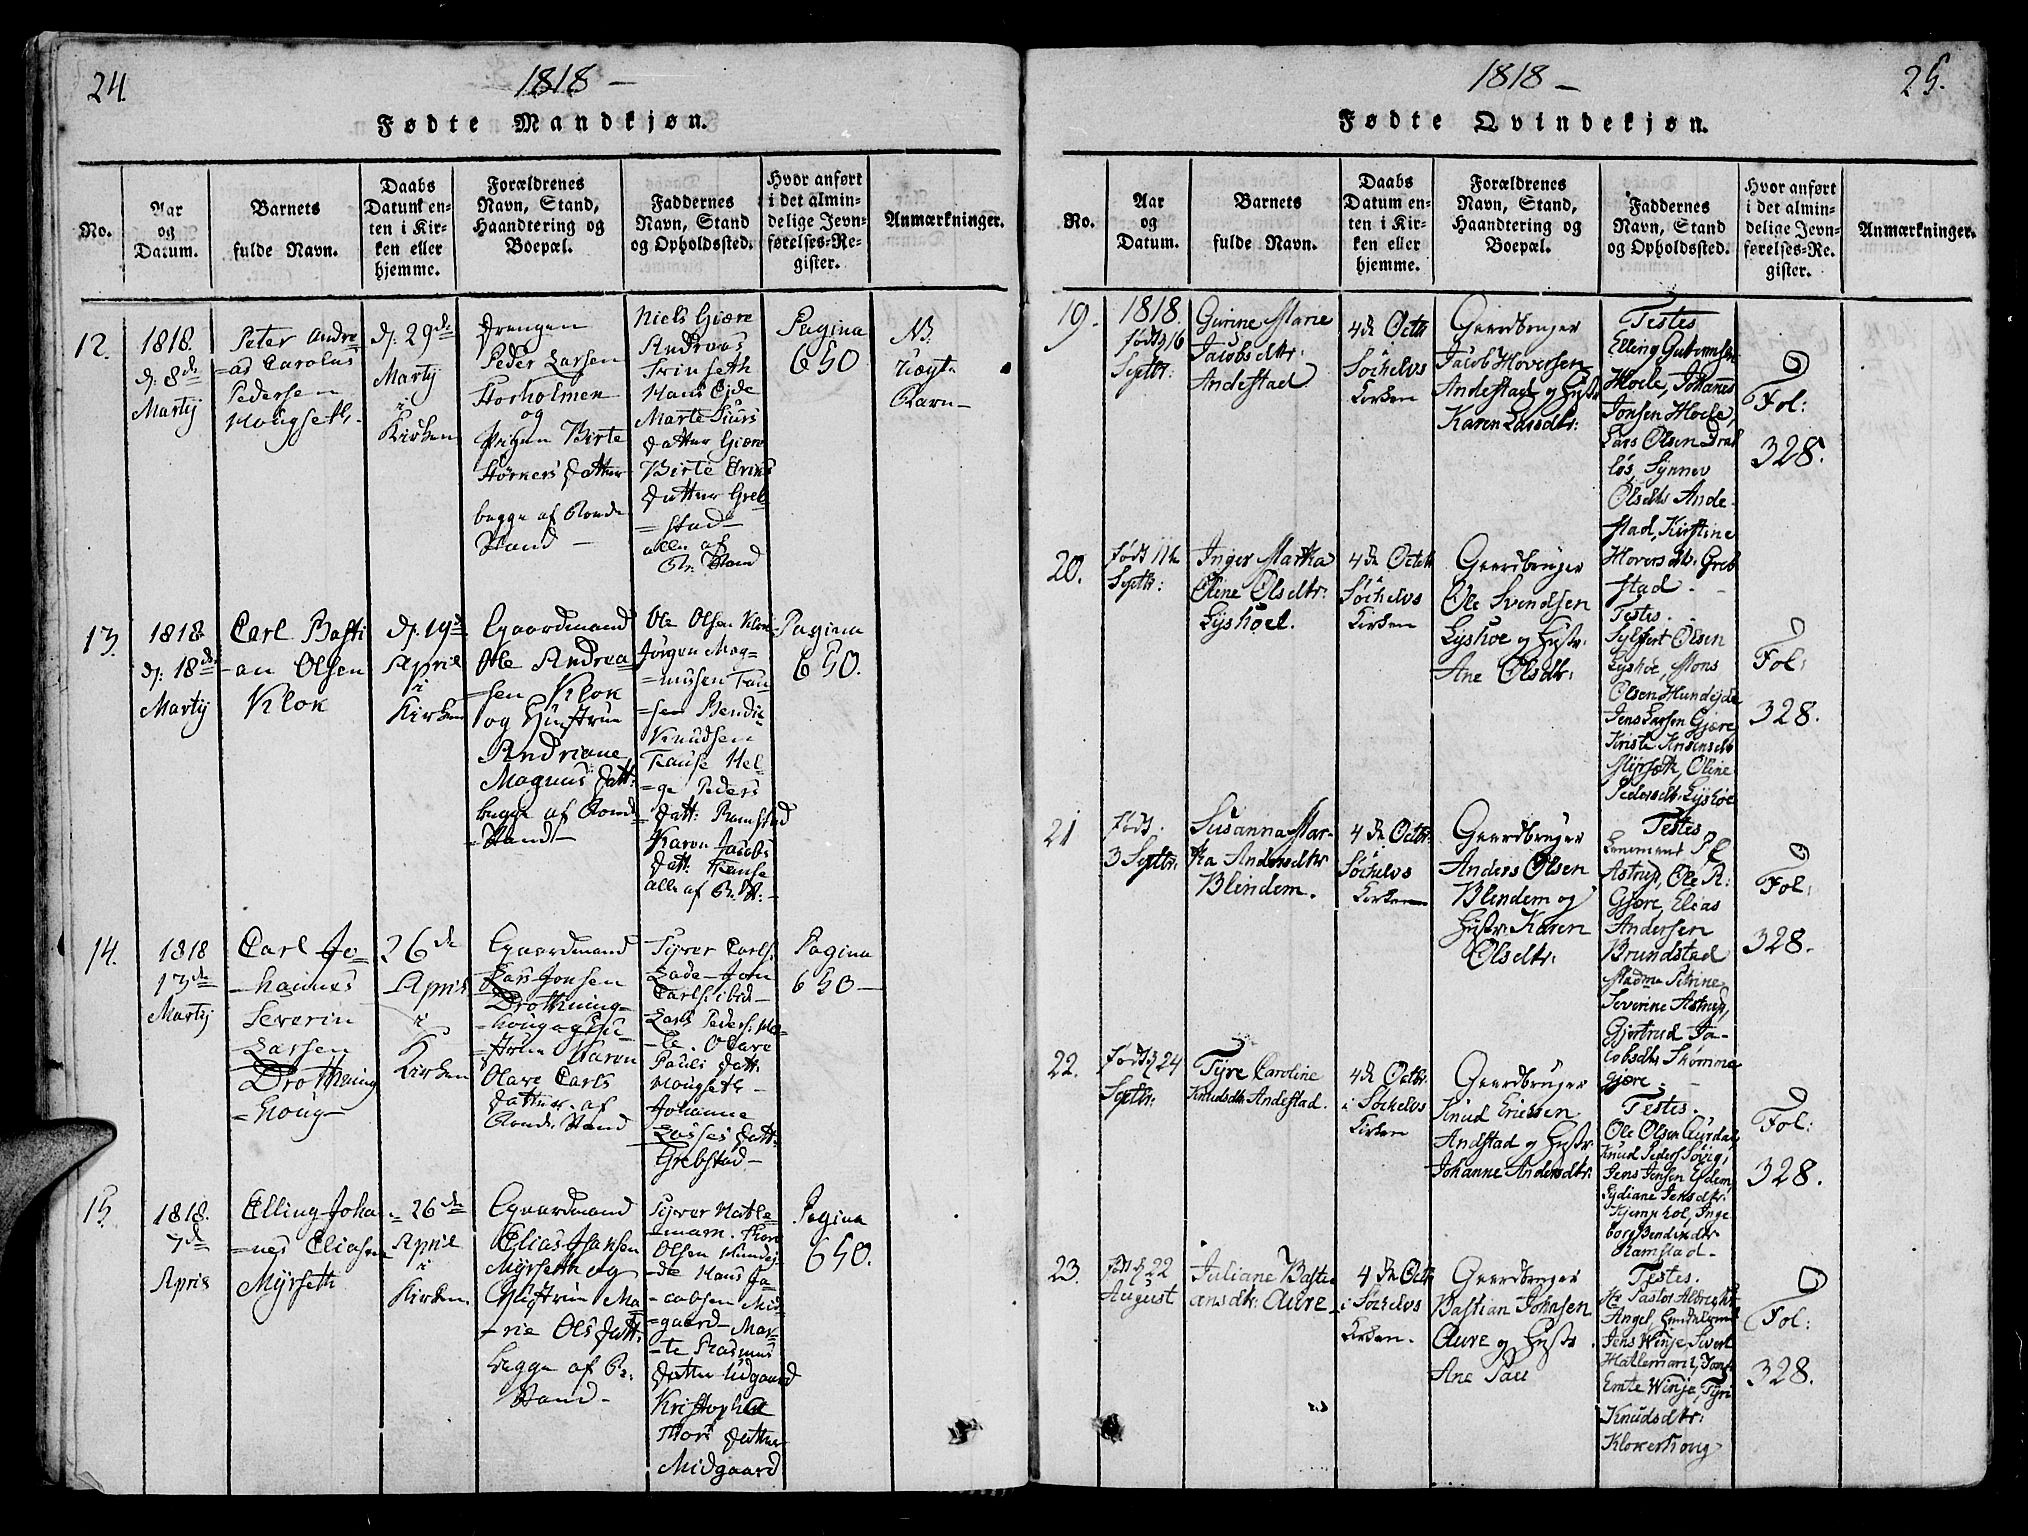 24.
1818 –
Fødte Mandkjøn.
No.
Aar
og
Datum.
Barnets
fulde Navn.
Daabs
Datum en-
ten i Kir-
ken eller
hjemme.
Forældrenes
Navn, Stand,
Haandtering og
Boepæl.
Faddernes
Navn, Stand
og Opholdssted.
Hvor anført
i det almin-
delige Jevn-
førelses-Re-
gister.
Anmærkninger.
12.
1818.
d: 8de
Martij
Peter Andre
=as Carolus
Pedersen
Hougseth.
d: 29de
Martij
i
Kirken
Drengen
Peder Larsen
Storholmen
og
Pigen Birte
Størkers Datter
begge af Bonde
Stand –
Niels Giære
Andreas
Trinseth
Hans Eide
Marte Siurs
Datter Giære
Birte
Datter Greb
=stad –
alle af
Stand
Pagina
650
NB.
Uægte
Barn –
13.
1818.
d: 18de
Martij
Carl Basti
=an Olsen
Klok
d: 19de
April
i
Kirken
Gaardmand
Ole Andrea
=sen Klok
og Hustrue
Andriane
Magnus Datt:
begge af Bonde
=Stand –
Ole Olsen Klok
Jørgen Mag=
=nusen Tau
=sen Bendix
Knudsen
Tause Hel=
=ge Peders
Datt: Ramstad
Karen Jacobs
Datt: Tause
alle af B. St: –
Pagina
650.
14.
1818
13de
Martij
Carl Jo=
=hannes
Severin
Larsen
Drothning
=houg –
26de
April
i
Kirken
Gaardmand
Lars Jonsen
Drothning=
=houg og Hu=
=strue Karen
Olave Carls
Datter. af
Bonde Stand
Syver Carls.
Lade – Jon
Carls. ibid –
Lars Peders. Ho=
=le. Olave
Pauli Datt:
Hougseth –
Johanne
Lasses Datt:
Grebstad –
Pagina
650 –
15.
1818.
7de
April
Elling Joha
=nes Eliasen
Myrseth
26de
April
i
Kirken.
Gaardmand
Elias Hansen
Myrseth og
Hustrue Ma=
=rie Ols Datt:
begge af B.
Stand –
Syver Hatle=
=mark. Thore
Olsen Hundej=
=de Hans Ja=
=cobsen Mid=
=gaard – Mar=
=te Rasmus
Datter Midgaard
Kristophe
Thors Datter
Midgaard
Pagina
650.
25.
1818 –
Fødte Qvindekjøn.
No.
Aar
og
Datum.
Barnets
fulde Navn.
Daabs
Datum en-
ten i Kir-
ken eller
hjemme.
Forældrenes
Navn, Stand,
Haandtering og
Boepæl.
Faddernes
Navn, Stand
og Opholdssted.
Hvor anført
i det almin-
delige Jevn-
førelses-Re-
gister.
Anmærkninger.
19.
1818.
født d 16
Septbr:
Gurine Marie
Jacobsdtr:
Andestad
4de Octbr
Söchelvs
Kirken
Gaardbruger
Jacob Hoversen
Andestad og Hustr
Karen Larsdtr:
Testes
Elling Guttormsen
Hoele, Johannes
Jonsen Hoele,
Lars Olsen Drab
løs, Synnev
Olsdtr Ande-
stad, Kirstine
Hoversdtr: Greb
stad. –
Fol:
328.
20.
Født 11te
Septbr:
Inger Martha
Oline Olsdtr:
Lyshoel.
4de Octbr
Söchelvs
Kirken
Gaardbruger
Ole Svendsen
Lyshoe og Hustr:
Ane Olsdtr:
Testes.
Sylfert Olsen
Lyshoe, Mons
Olsen Hundejde
Jens Larsen Gjøre
Kirste Knudsdtr
Myrseth, Oline
Pedersdtr: Lyshoe
Fol:
328.
21
Født.
3 Septbr:
Susanna Mar-
tha Andersdtr
Blindem.
4de Octbr:
Söchelvs
Kirken
Gaardbruger
Anders Olsen
Blendem og
Hustr: Karen
Olsdtr:
Testes
Lensmand P
Astrup, Ole R:
Gjære, Elias
Andersen
Brundstad
Madme Petrine
Severine Astrup,
Gjertrud Ja-
cobsdtr Skømme
gjære. –
Fol:
328.
22.
Født d 24
Septbr:
Tyre Caroline
Knudsdtr Andestad.
4de Octbr.
i Söchelvs
Kirken
Gaardbruger
Knud Ericksen
Andstad og Hustr:
Johanne Andersdtr:
Testes.
Ole Olsen Aurdal,
Knud Peders Søvig,
Jens Jensen Eidem,
Lydiane Jensdtr:
Kjemphol, Inge
borg Bendixdtr
Ramstad –
Fol:
328.
23.
Født d 22
August
Juliane Basti
ansdtr: Aure
4de Octbr
i Söchelvs
Kirken.
Gaardbruger
Bastian Johnsen
Aure og Hustr
Ane
Testes.
Hr Pastor Albright
Angel,
Jens Winje, Sivert
Hatlemark,
Emte Winje, Tyri
Knudsdtr:
Kloverhoug
Fol:
328.